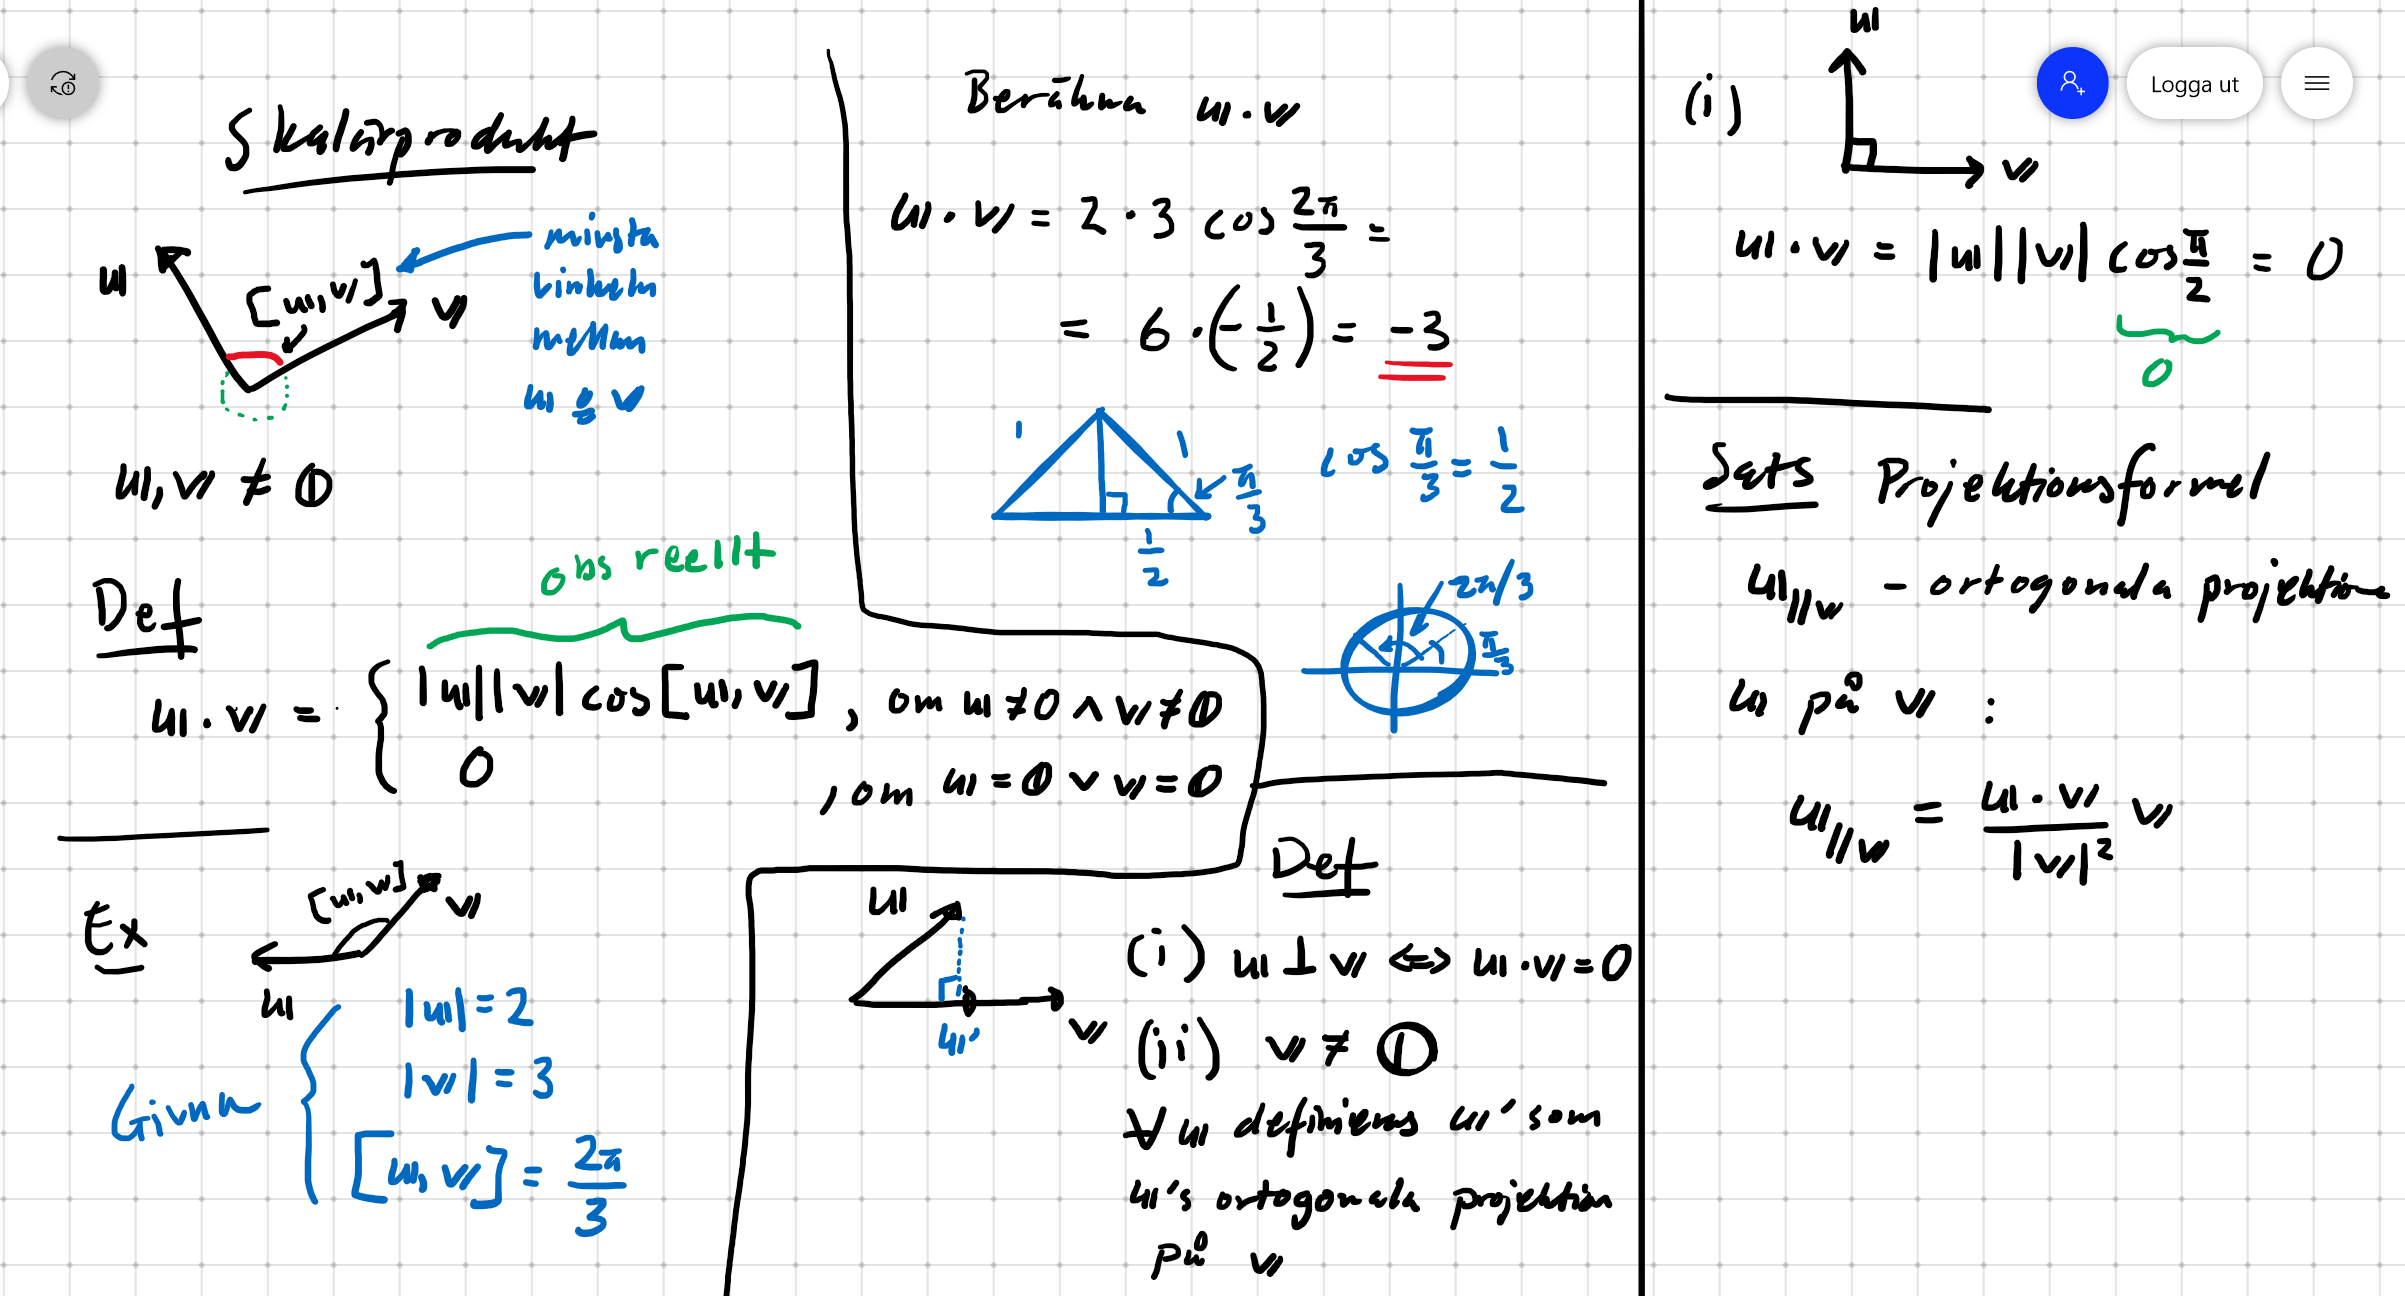 Skalärprodukt
u
[u, v]
v
minsta
vinkeln
mellan
u o v
u, v ≠ 0
Def
obs reellt
u · v = { |u||v| cos [u, v] , om u ≠ 0 ∧ v ≠ 0
0 , om u = 0 ∨ v = 0
Ex
[u, v]
v
u
Givna
|u| = 2
|v| = 3
[u, v] = 2π/3
Beräkna u · v
u · v = 2 · 3 cos 2π/3 =
= 6 · (-1/2) = -3
1
1
π/3
1/2
cos π/3 = 1/2
2π/3
π/3
u
v
u'
Def
(i) u ⊥ v ⇔ u · v = 0
(ii) v ≠ 0
∀ u definieras u' som
u's ortogonala projektion
på v
(i)
u
v
Logga ut
u · v = |u||v| cos π/2 = 0
0
Sats Projektionsformel
u//v - ortogonala projektion
u på v :
u//v = u · v / |v|² v